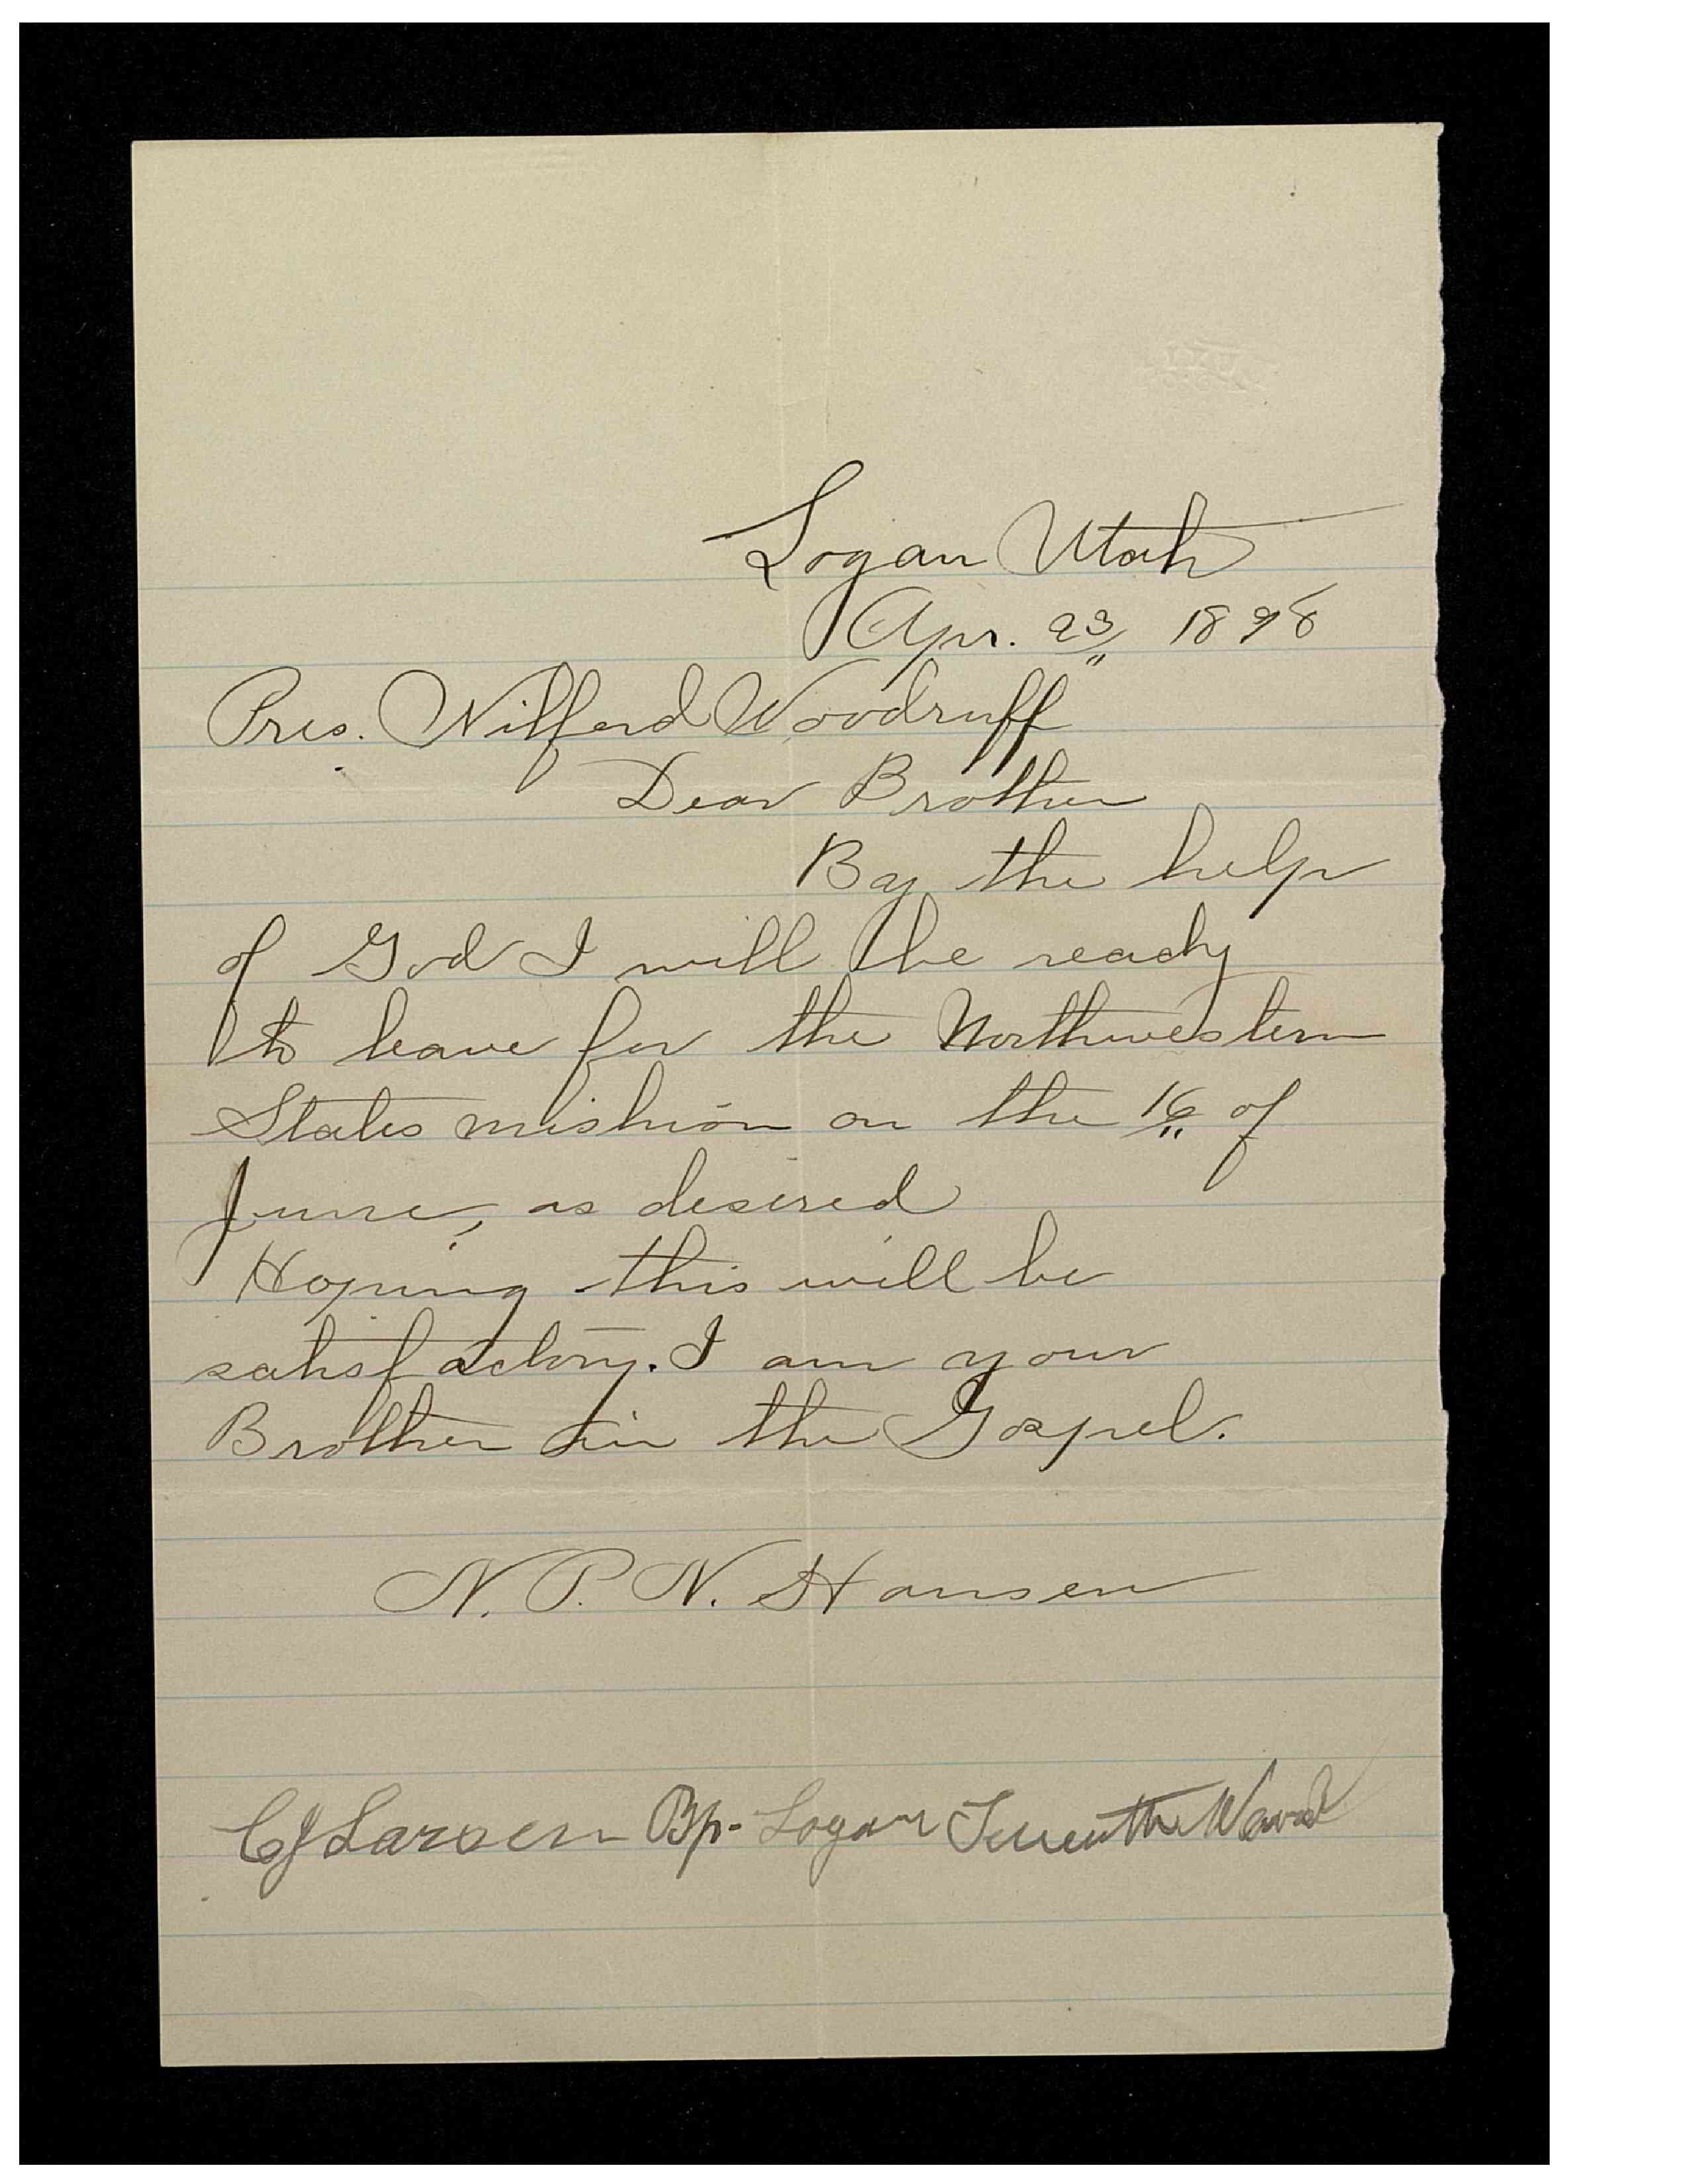 Logan Utah
Apr. 23, 1898
Pres. Wilferd Woodruff
Dear Brother
By the help
of God I will be ready
to leave for the Northwestern
States mishion on the 16 of
June, as desired
Hoping this will be
satisfactory. I am your
Brother in the Gospel.
N. P. N. Hansen
CJ Larsen Bp- Logan Seventh Ward